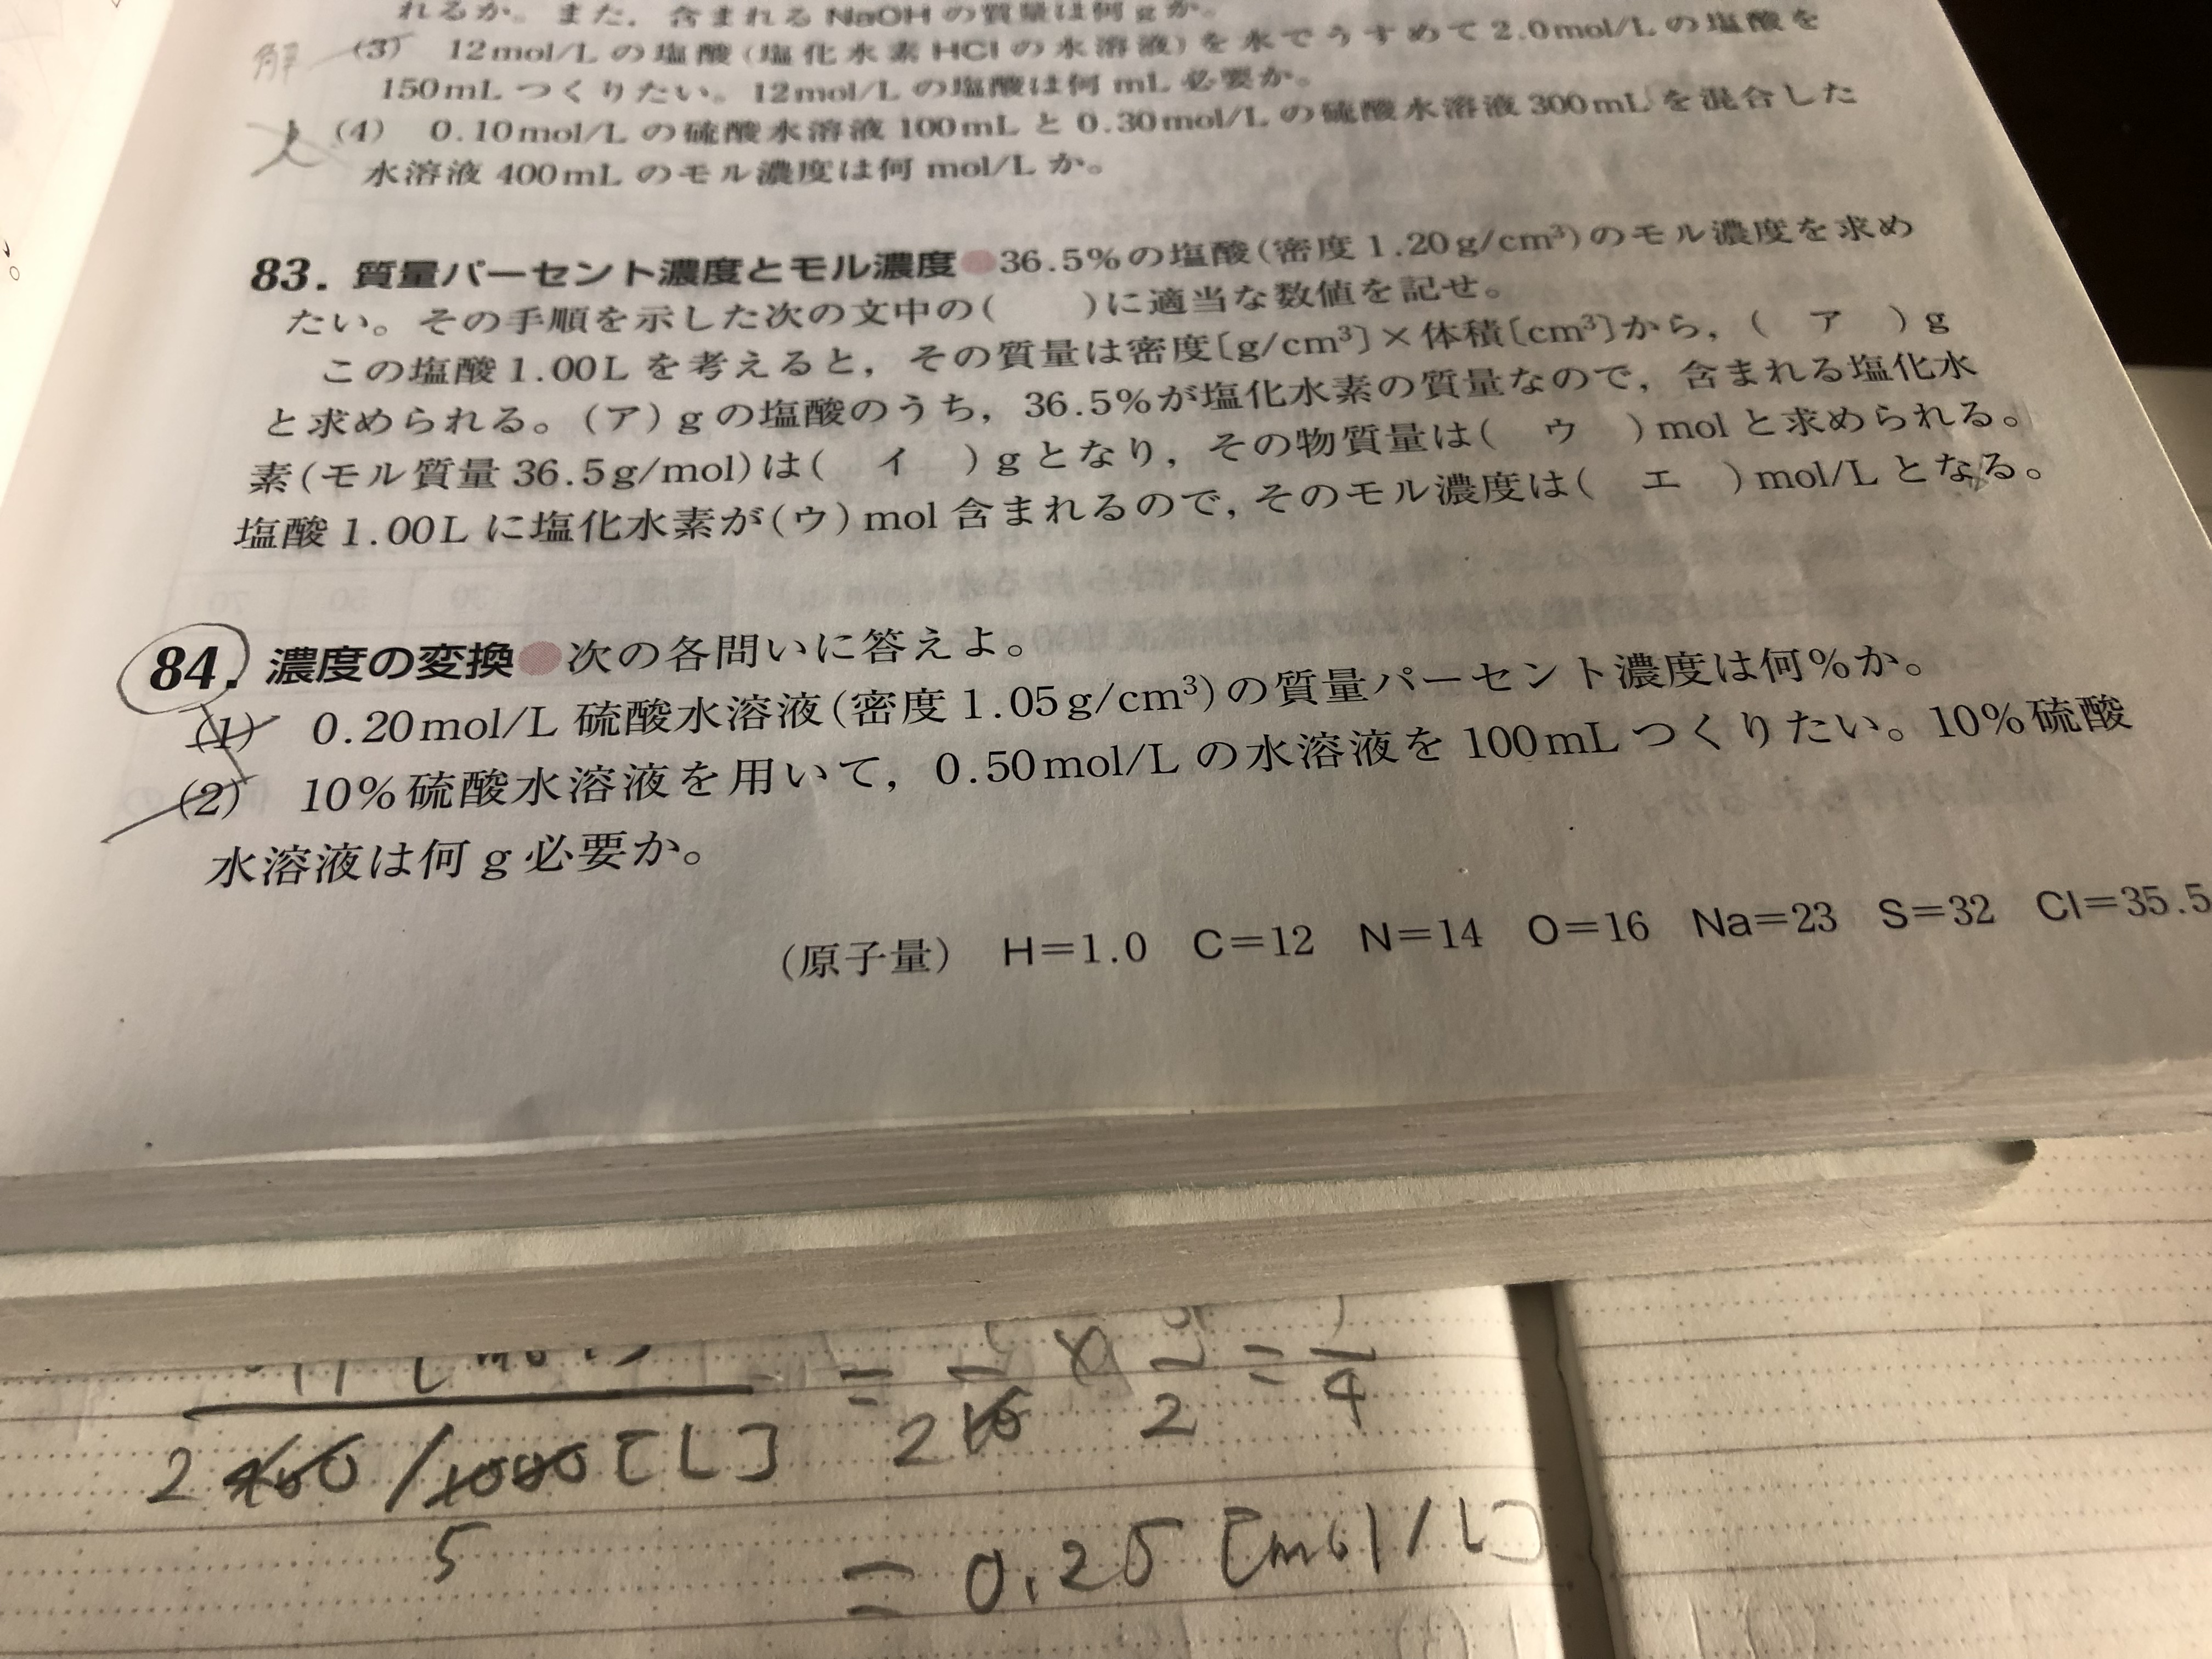 れるか。また，含まれるNaOHの質量は何gか。
解 (3) 12mol/Lの塩酸(塩化水素HClの水溶液)を水でうすめて2.0mol/Lの塩酸を
150mLつくりたい。12mol/Lの塩酸は何mL必要か。
(4) 0.10mol/Lの硫酸水溶液100mLと0.30mol/Lの硫酸水溶液300mLを混合した
水溶液400mLのモル濃度は何mol/Lか。
83. 質量パーセント濃度とモル濃度●36.5%の塩酸(密度1.20g/cm³)のモル濃度を求め
たい。その手順を示した次の文中の(　　)に適当な数値を記せ。
この塩酸1.00Lを考えると，その質量は密度[g/cm³]×体積[cm³]から，(　ア　)g
と求められる。(ア)gの塩酸のうち，36.5%が塩化水素の質量なので，含まれる塩化水
素(モル質量36.5g/mol)は(　イ　)gとなり，その物質量は(　ウ　)molと求められる。
塩酸1.00Lに塩化水素が(ウ)mol含まれるので，そのモル濃度は(　エ　)mol/Lとなる。
84. 濃度の変換●次の各問いに答えよ。
(1) 0.20mol/L硫酸水溶液(密度1.05g/cm³)の質量パーセント濃度は何%か。
(2) 10%硫酸水溶液を用いて，0.50mol/Lの水溶液を100mLつくりたい。10%硫酸
水溶液は何g必要か。
(原子量) H=1.0 C=12 N=14 O=16 Na=23 S=32 Cl=35.5
2 400/1000[L] = 2 10 × 2 = 4
5
= 0.25 [mol/L]